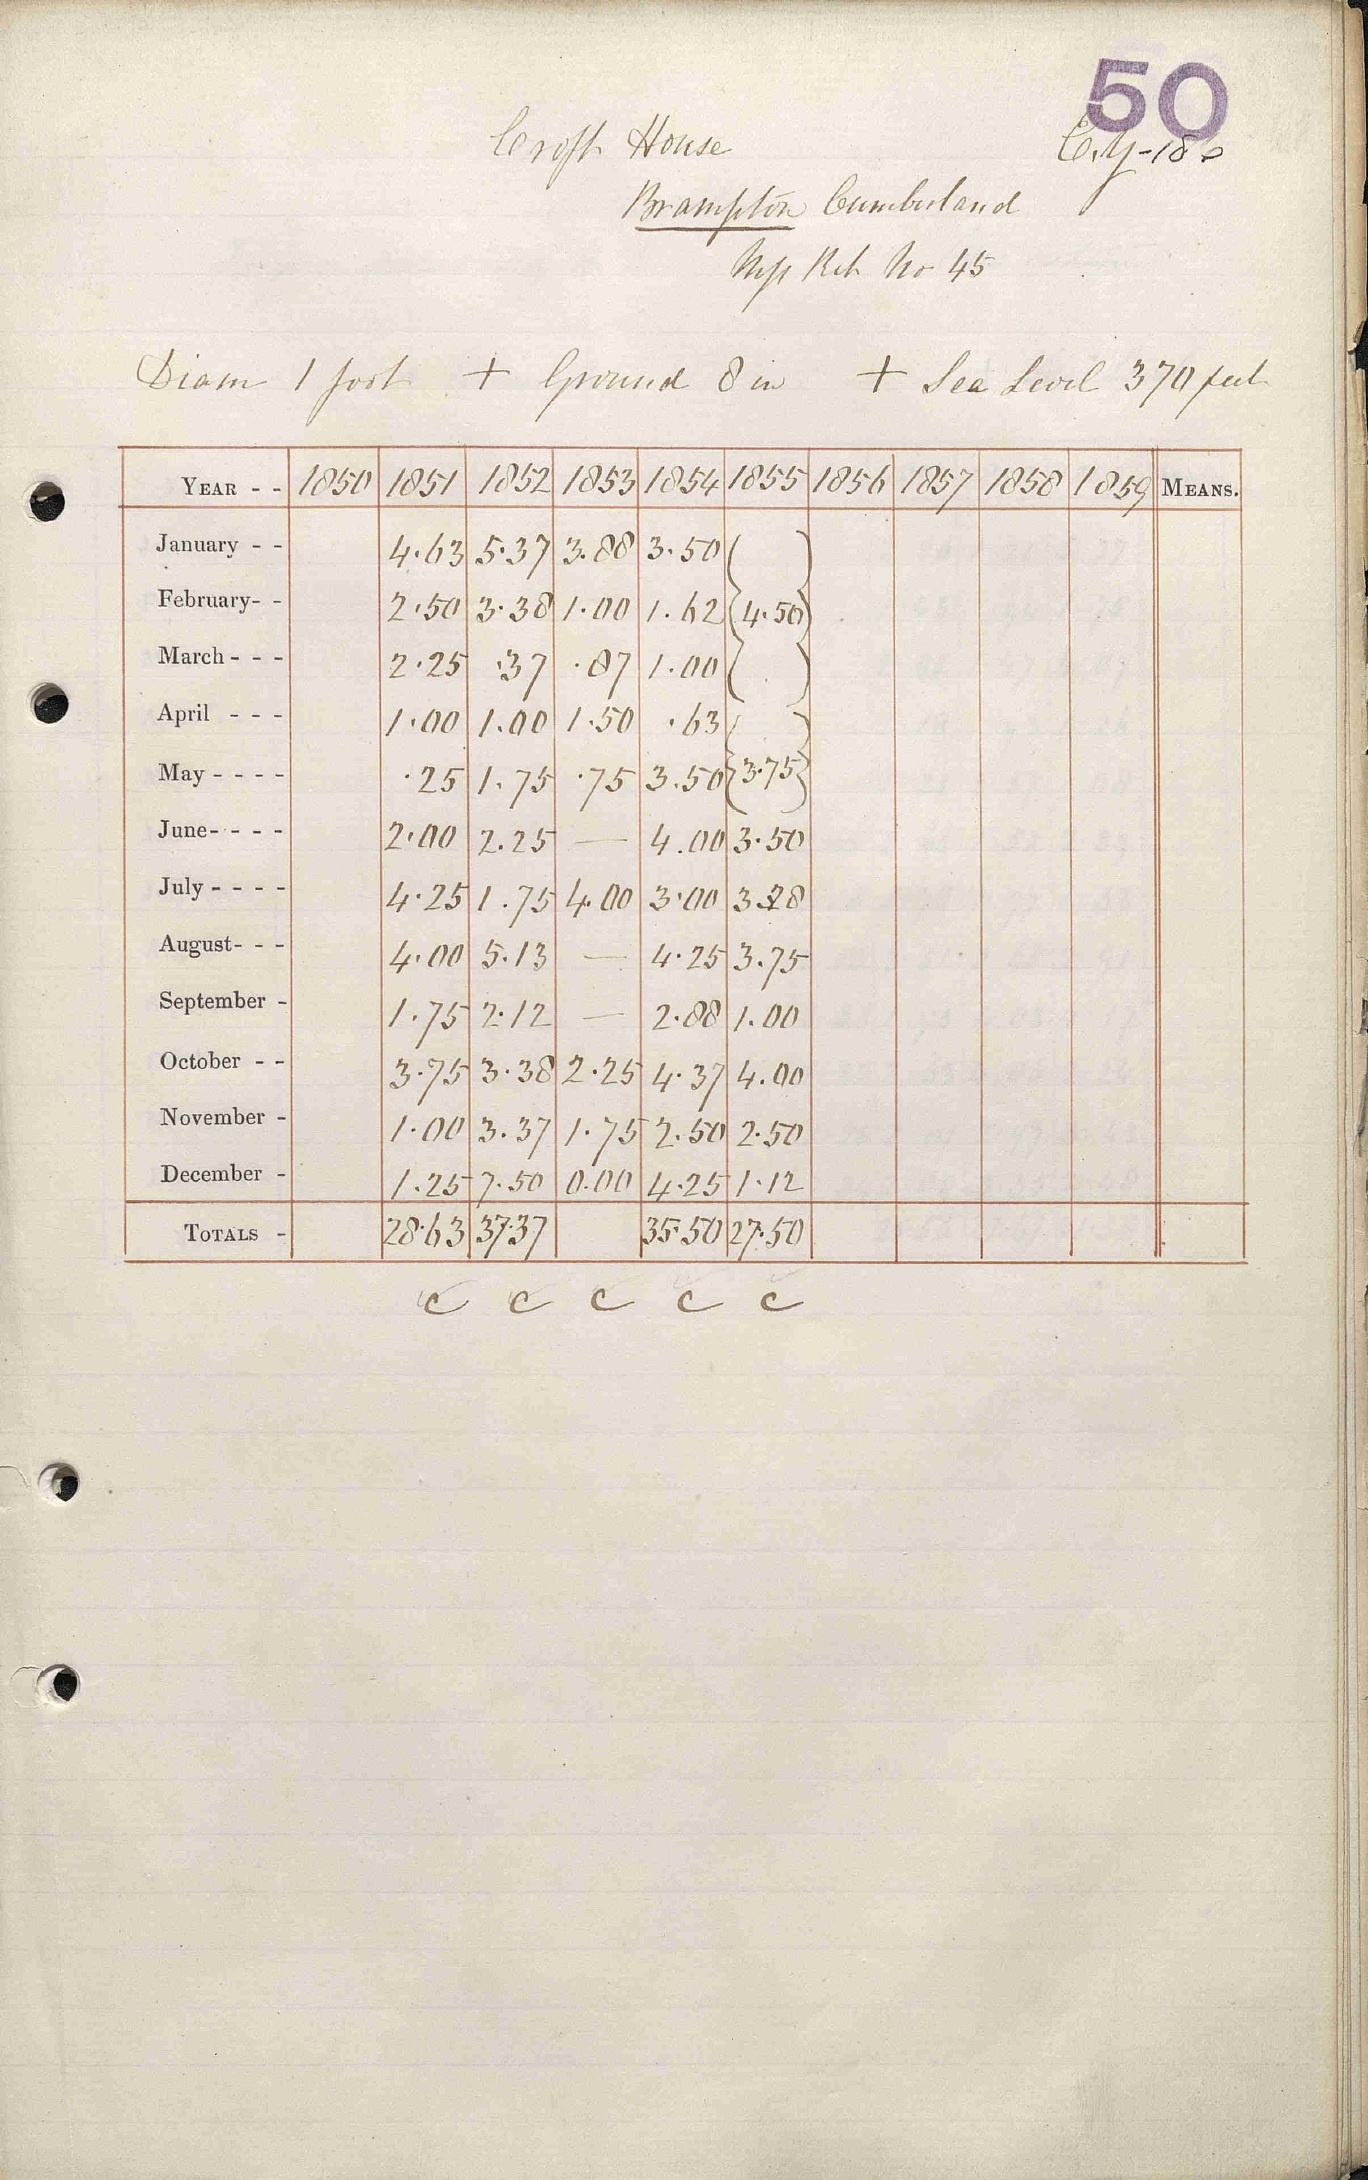 50
Croft House
Brampton Cumberland
No 45
Diam 1 foot + Ground 8 in + Sea Level 370 feet
YEAR - - 1850 1851 1852 1853 1854 1855 1856 1857 1858 1859 MEANS.
January - - 4.63 5.37 3.88 3.50
February- - 2.50 3.38 1.00 1.62 {4.50}
March - - - 2.25 .37 .87 1.00
April - - - 1.00 1.00 1.50 .63
May - - - - .25 1.75 .75 3.50 {3.75}
June- - - - 2.00 2.25 — 4.00 3.50
July - - - - 4.25 1.75 4.00 3.00
August- - - 4.00 5.13 — 4.25 3.75
September - 1.75 2.12 — 2.88 1.00
October - - 3.75 3.38 2.25 4.37 4.00
November - 1.00 3.37 1.75 2.50 2.50
December - 1.25 7.50 0.00 4.25 1.12
TOTALS - 28.63 37.37 35.50 27.50
c c c c c